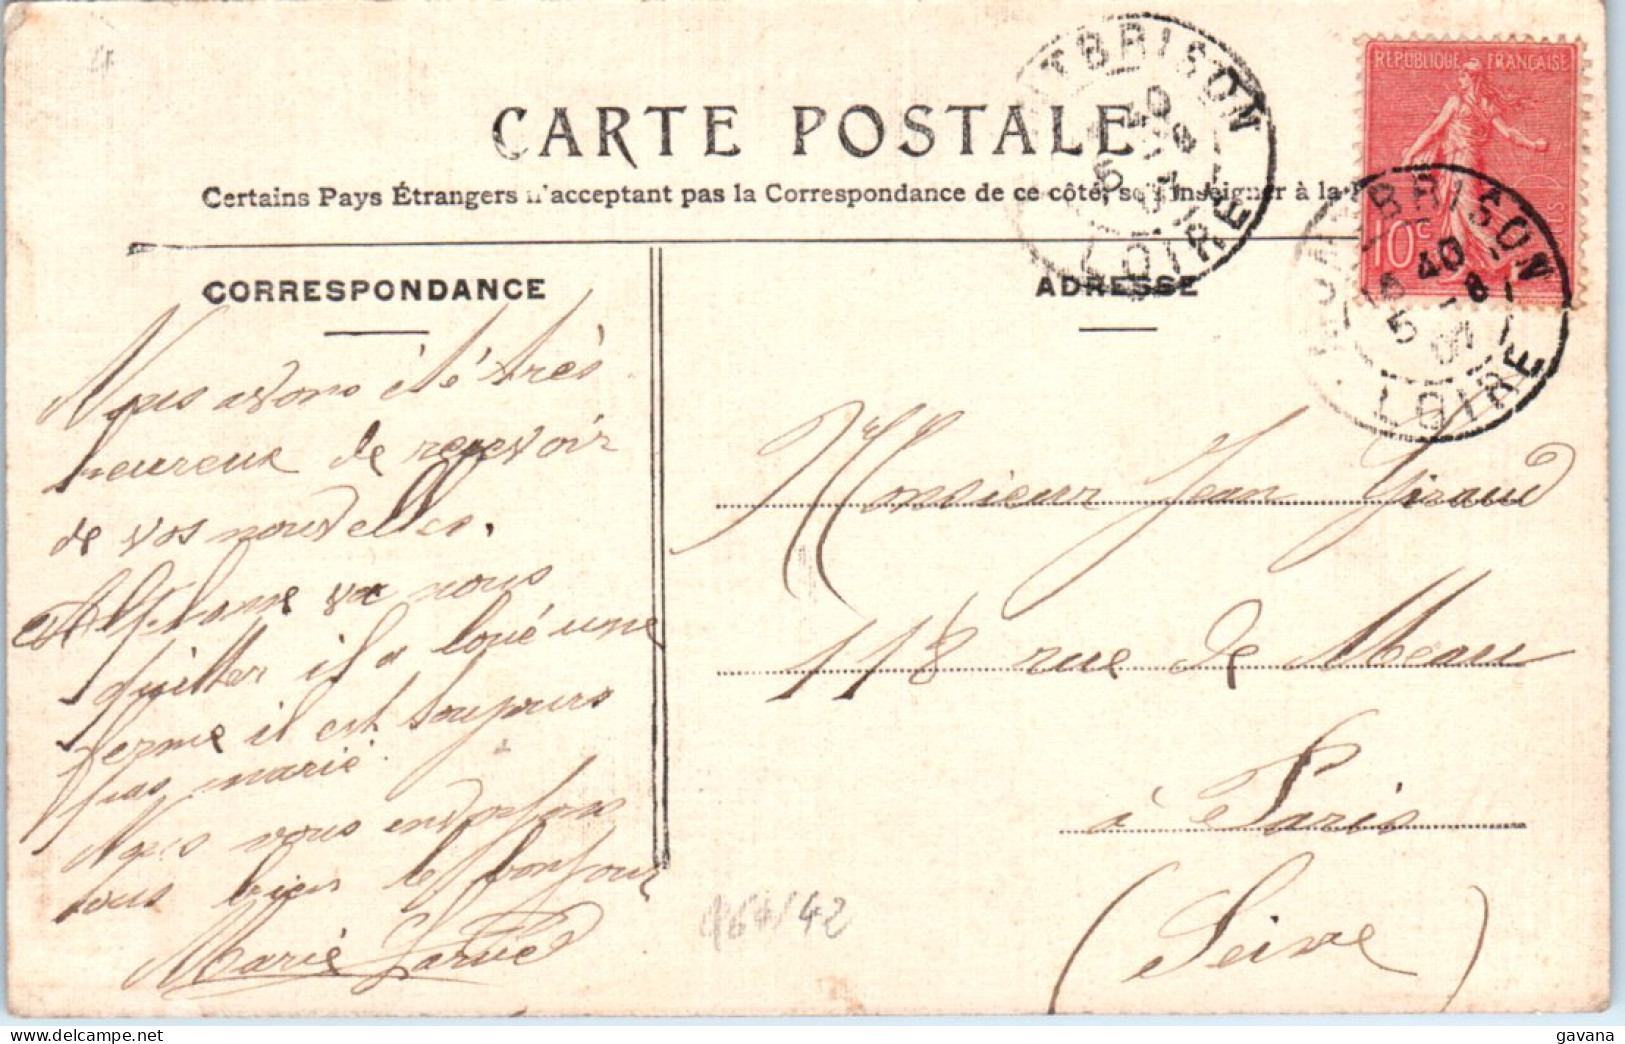 CARTE POSTALE
Certains Pays Étrangers n'acceptant pas la Correspondance de ce côté, se renseigner à la
CORRESPONDANCE
ADRESSE
RÉPUBLIQUE FRANÇAISE
10c
MONTBRISON
5 40
5 - 8
07
LOIRE
MONTBRISON
LOIRE
Nous avons été très
heureux de recevoir
de vos nouvelles.
Alphonse va nous
quitter il a loué une
ferme il est toujours
pas marié
Nous vous envoyons
tous bien le bonjour
Marie
Monsieur Jean Giraud
118 rue de Meaux
à Paris
(Seine)
164/42
gavana